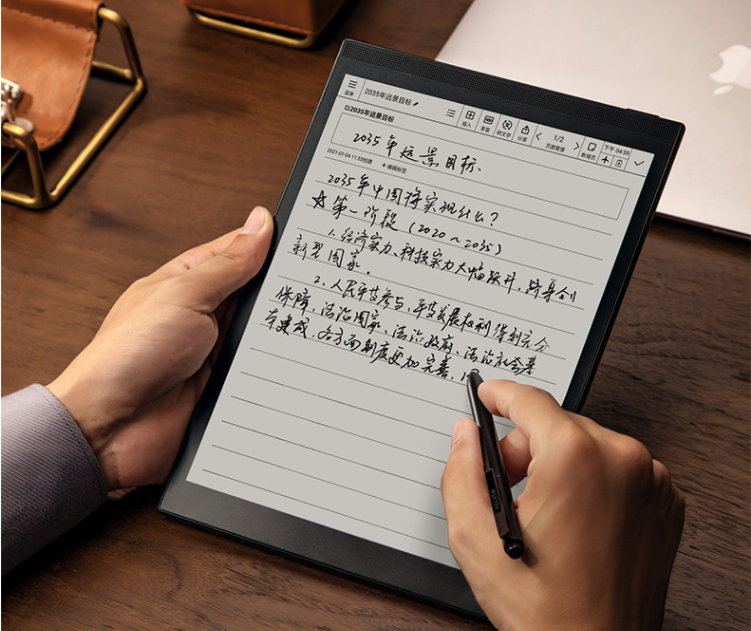 菜单 2035年远景目标 插入 语音 转文字 分享 1/2 页面管理 新增页 下午 04:59
以2035年远景目标
2035年远景目标、
2021-01-04 11:52创建 +编辑标签
2035年中国将实现什么?
☆第一阶段(2020~2035)
1.经济实力、科技实力大幅跃升,跻身创
新型国家。
2、人民平等参与、平等发展权利得到充分
保障,法治国家、法治政府、法治社会基
本建成,各方面制度更加完善,